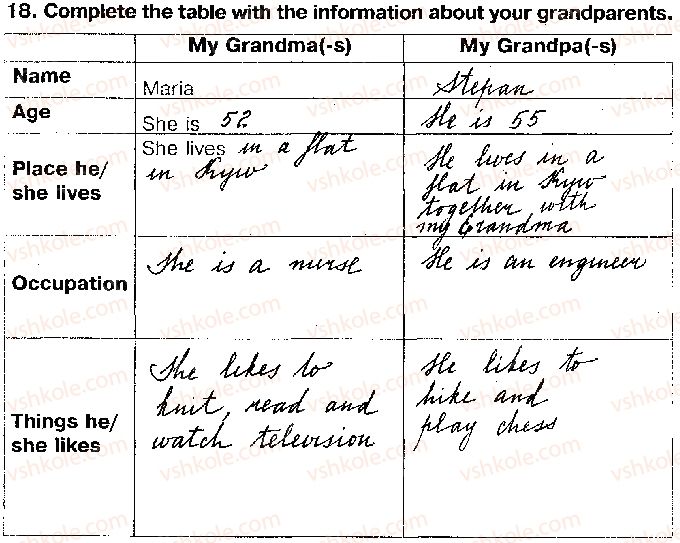 18. Complete the table with the information about your grandparents.
My Grandma(-s) My Grandpa(-s)
Name Maria Stepan
Age She is 52 He is 55
Place he/
she lives
She lives in a flat
in Kyiv
He lives in a
flat in Kyiv
together with
my Grandma
Occupation She is a nurse He is an engineer
Things he/
she likes
She likes to
knit, read and
watch television
He likes to
hike and
play chess
vshkole.com